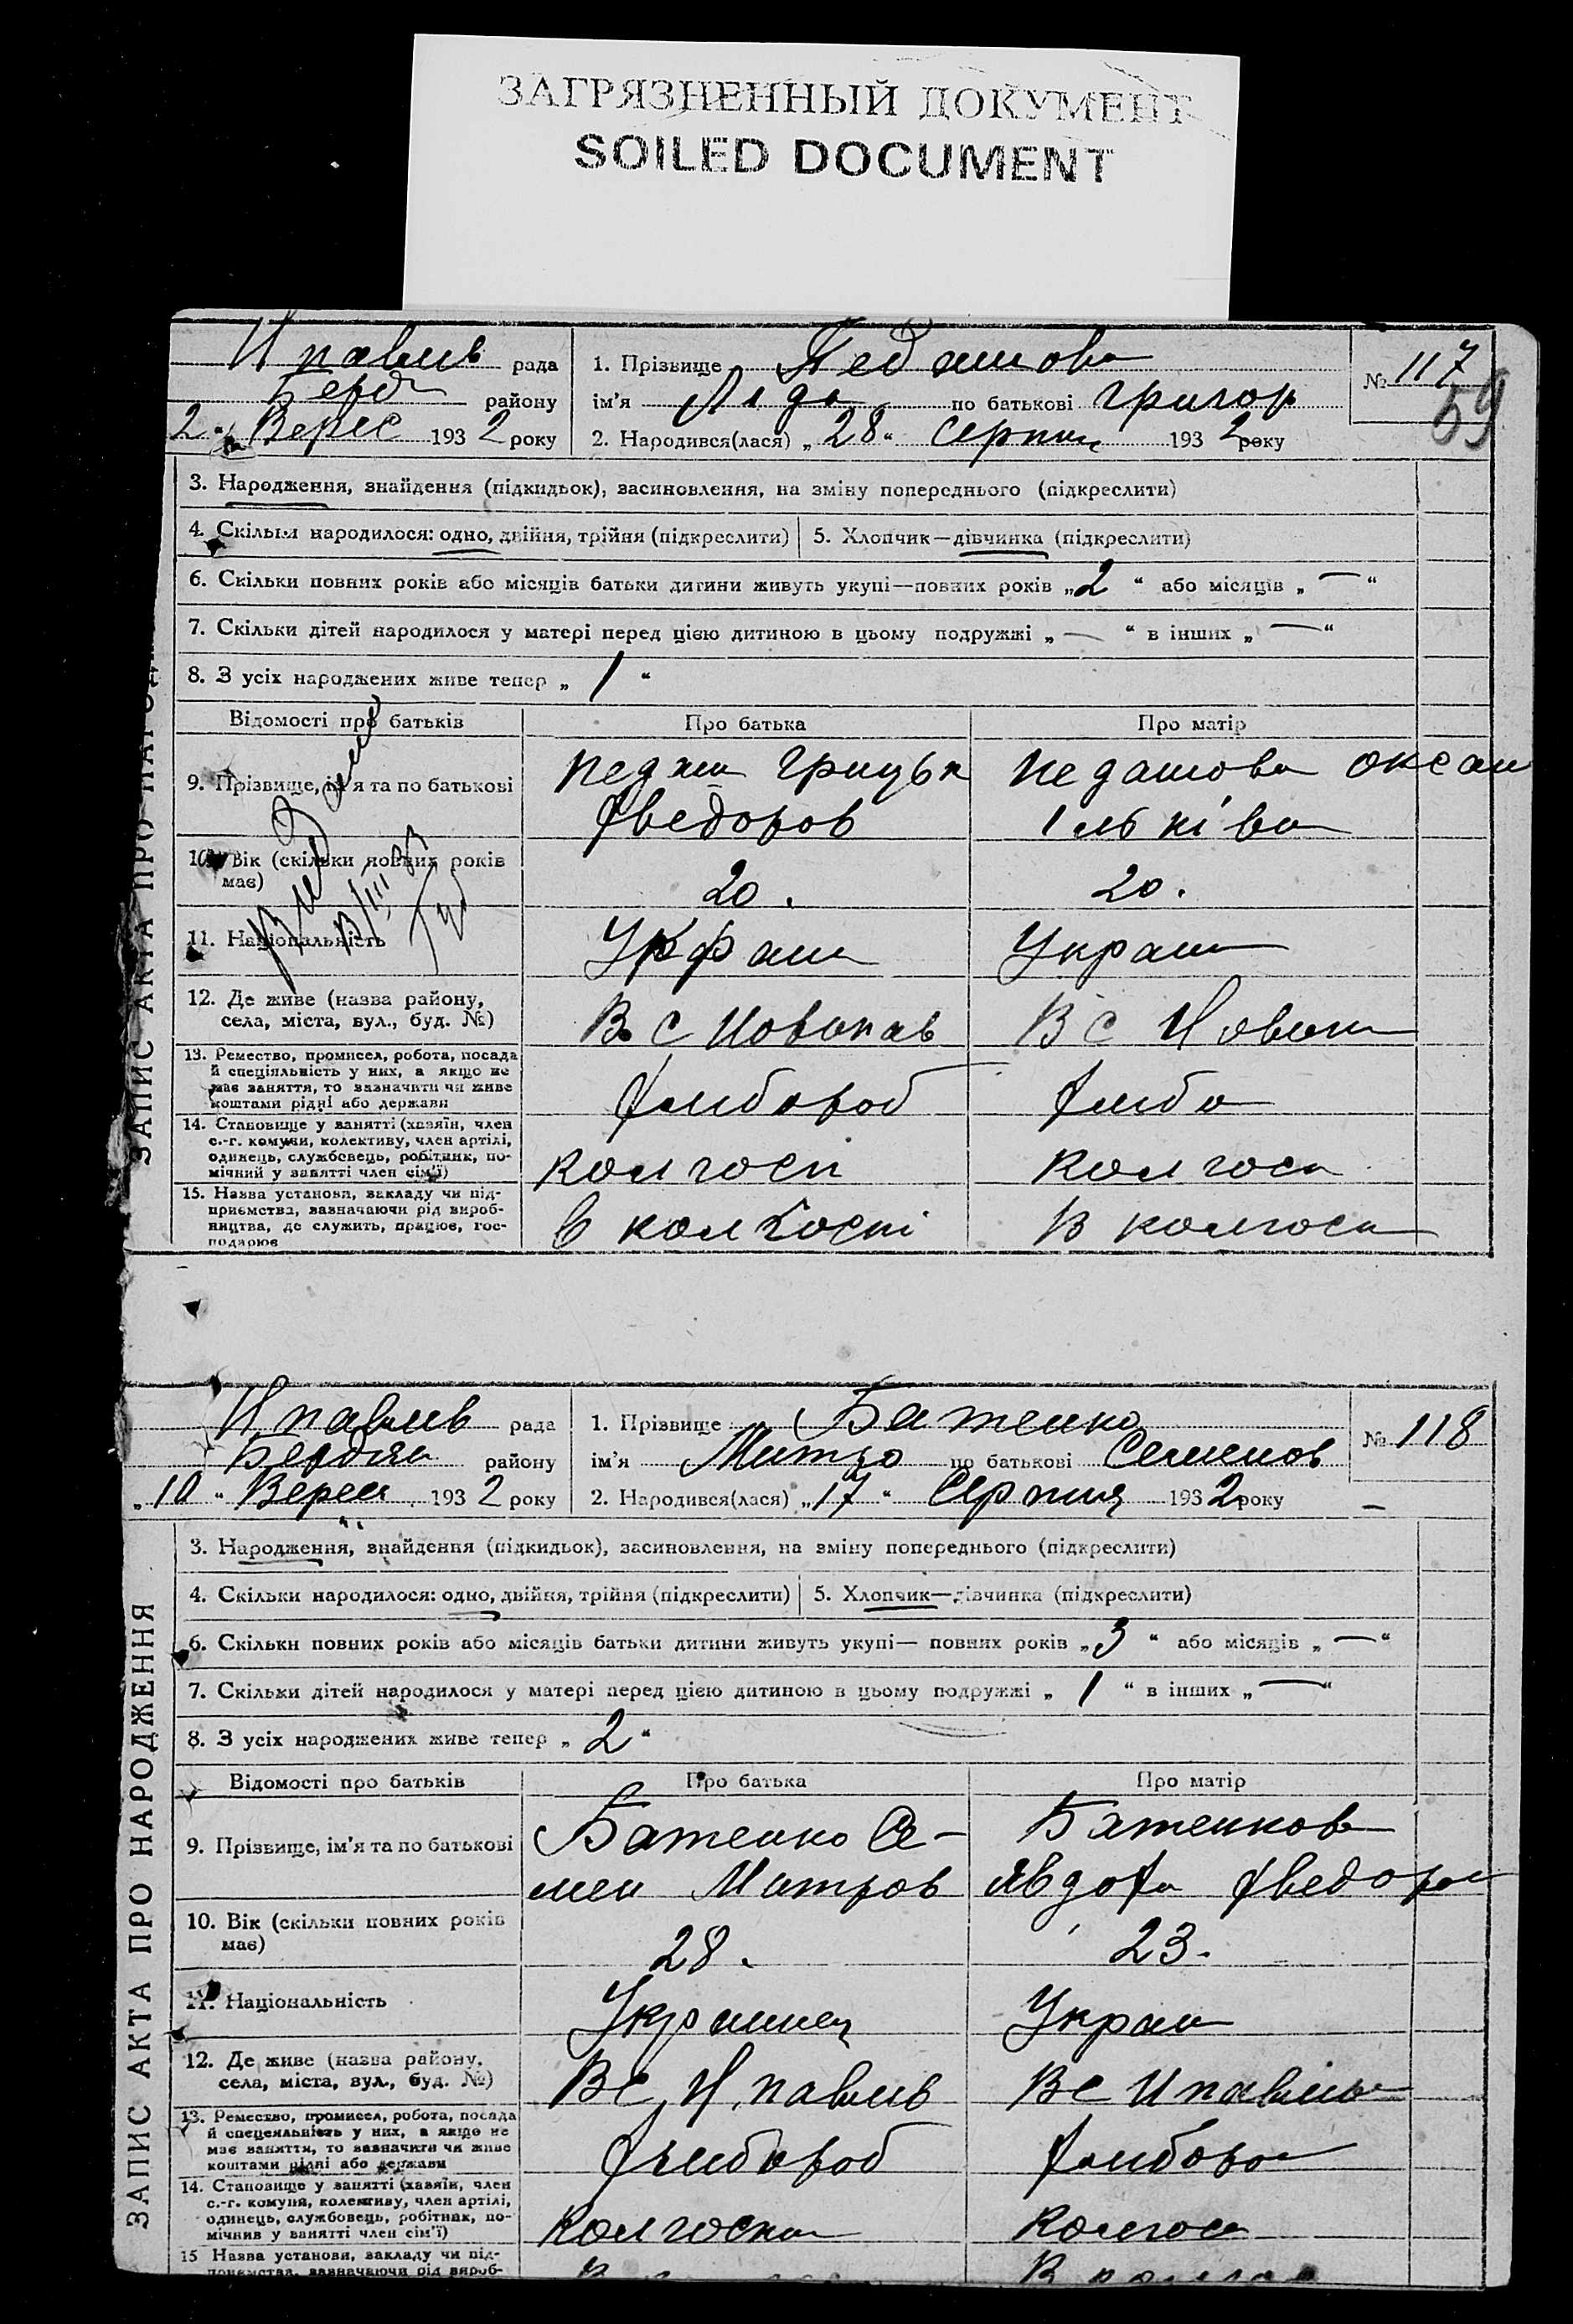 ЗАГРЯЗНЕННЫЙ ДОКУМЕНТ
SOILED DOCUMENT
Н павлів рада
Берд району
2 " Верес 1932 року
1. Прізвище Педашова
ім'я Ліда по батькові Григор
2. Народився(лася) „28" Серпня 1932 року
№ 117
59
3. Народження, знайдення (підкидьок), засиновлення, на зміну попереднього (підкреслити)
4. Скільки народилося: одно, двійня, трійня (підкреслити) 5. Хлопчик—дівчинка (підкреслити)
6. Скільки повних років або місяців батьки дитини живуть укупі—повних років „2" або місяців „—"
7. Скільки дітей народилося у матері перед цією дитиною в цьому подружжі „—" в інших „—"
8. З усіх народжених живе тепер „1"
Відомості про батьків Про батька Про матір
9. Прізвище, ім'я та по батькові
Педаш Грицьк
Фведоров
Педашова Оксан
Ільківа
10. Вік (скільки повних років
має)
20. 20.
11. Національність Украин Украин
12. Де живе (назва району,
села, міста, вул., буд. №)
В с Новопав В с Новоп
13. Ремество, промисел, робота, посада
й спеціяльність у них, а якщо не
має заняття, то зазначити чи живе
коштами рідні або держави
хлибороб хлибо
14. Становище у занятті (хазяїн, член
с.-г. комуни, колективу, член артілі,
одинець, службовець, робітник, по-
мічний у занятті член сім'ї)
колгосп колгосп
15. Назва установи, закладу чи під-
приємства, зазначаючи рід вироб-
ництва, де служить, працює, гос-
подарює
в колгоспі в колгосп
ЗАПИС АКТА ПРО НАРОД
Н павлив рада
Бердян району
„10" Вересня 1932 року
1. Прізвище Батенко
ім'я Митро по батькові Семенов
2. Народився(лася) „17" Серпня 1932 року
№ 118
3. Народження, знайдення (підкидьок), засиновлення, на зміну попереднього (підкреслити)
4. Скільки народилося: одно, двійня, трійня (підкреслити) 5. Хлопчик—дівчинка (підкреслити)
6. Скільки повних років або місяців батьки дитини живуть укупі— повних років „3" або місяців „—"
7. Скільки дітей народилося у матері перед цією дитиною в цьому подружжі „1" в інших „—"
8. З усіх народжених живе тепер „2"
Відомості про батьків Про батька Про матір
9. Прізвище, ім'я та по батькові
Батенко Се-
мен Митров
Батенков
Явдоха Фведоро
10. Вік (скільки повних років
має)
28. 23.
11. Національність Украинец Украин
12. Де живе (назва району,
села, міста, вул., буд. №)
В с Н. павлив В с Н павлив
13. Ремество, промисел, робота, посада
й спецеяльність у них, а якщо не
має заняття, то зазначити чи живе
коштами рідні або держави
хлибороб хлиборо
14. Становище у занятті (хазяїн, член
с.-г. комуни, колективу, член артілі,
одинець, службовець, робітник, по-
мічник у занятті член сім'ї)
колгоспн колгосп
15 Назва установи, закладу чи під-
приємства, зазначаючи рід вироб-
ЗАПИС АКТА ПРО НАРОДЖЕННЯ